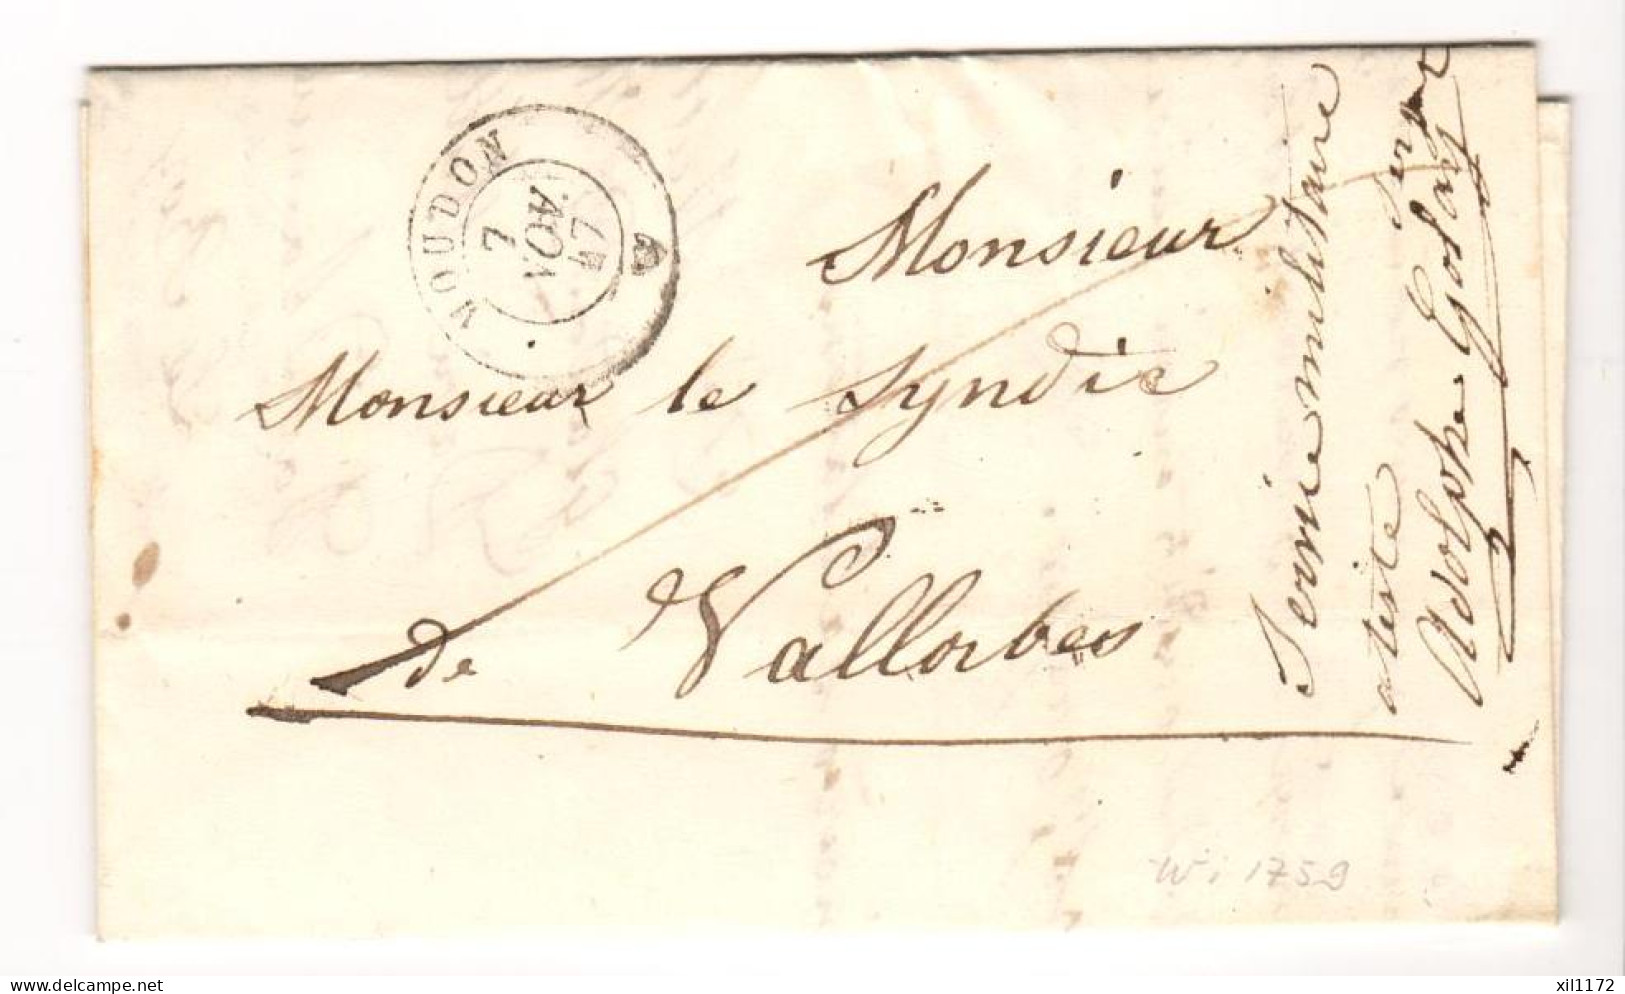 MOUDON
7
AOU
47
A
Monsieur
Monsieur le Syndic
de Vallorbes
Service militaire
atesté
Adolphe
Wi 1759
www.delcampe.net
xil1172